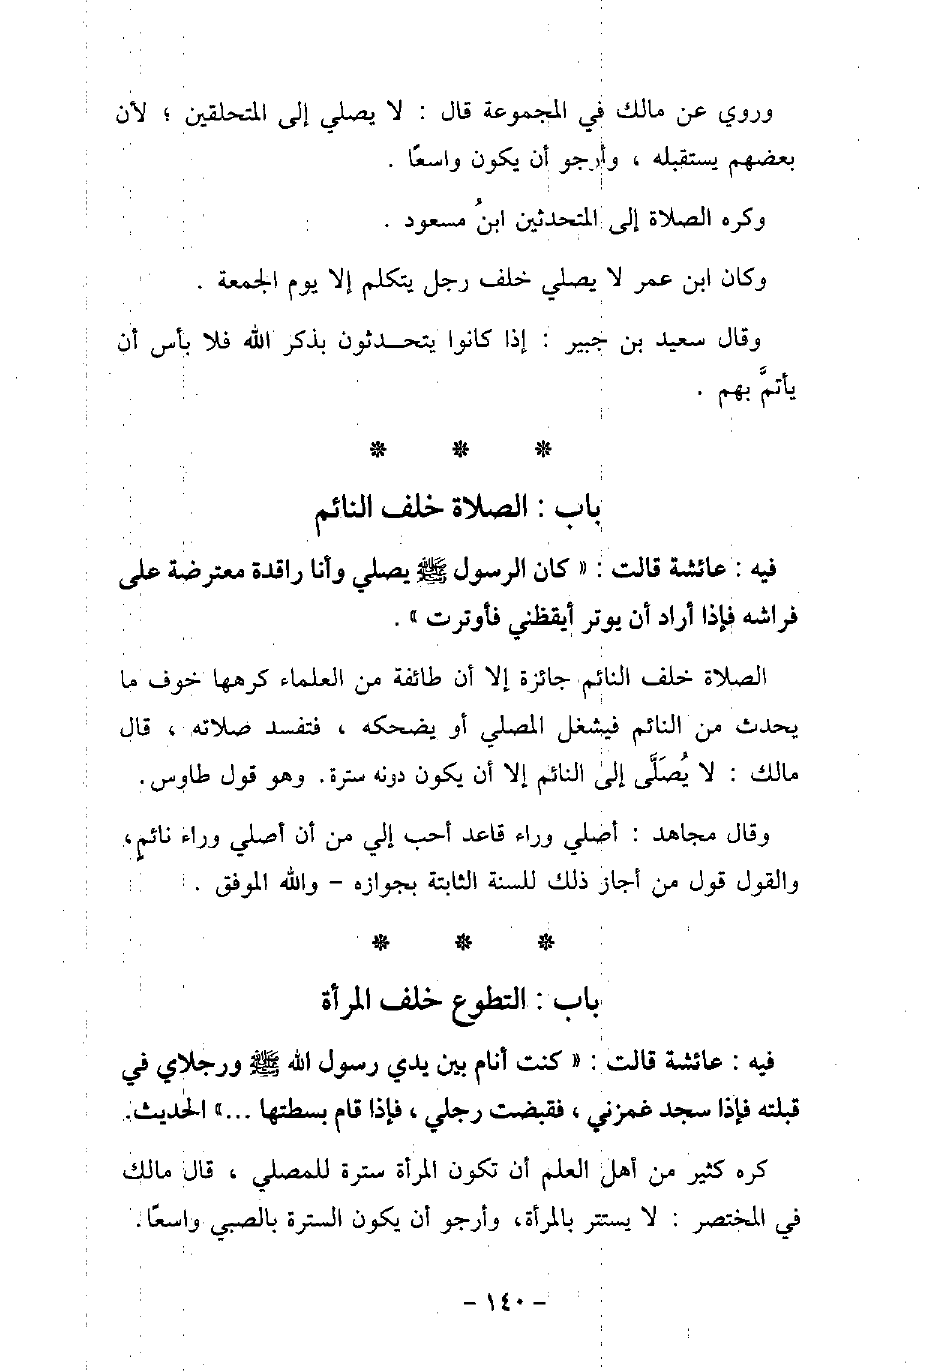 وروي عن مالك في المجموعة قال : لا يصلي إلى المتحلقين ؛ لأن
بعضهم يستقبله ، وأرجو أن يكون واسعًا .
وكره الصلاة إلى المتحدثين ابنُ مسعود .
وكان ابن عمر لا يصلي خلف رجل يتكلم إلا يوم الجمعة .
وقال سعيد بن جبير : إذا كانوا يتحــدثون بذكر الله فلا بأس أن
يأتمَّ بهم .
* * *
باب : الصلاة خلف النائم
فيه : عائشة قالت : « كان الرسول ﷺ يصلي وأنا راقدة معترضة على
فراشه فإذا أراد أن يوتر أيقظني فأوترت » .
الصلاة خلف النائم جائزة إلا أن طائفة من العلماء كرهها خوف ما
يحدث من النائم فيشغل المصلي أو يضحكه ، فتفسد صلاته ، قال
مالك : لا يُصَلَّى إلى النائم إلا أن يكون دونه سترة. وهو قول طاوس.
وقال مجاهد : أصلي وراء قاعد أحب إلي من أن أصلي وراء نائمٍ،
والقول قول من أجاز ذلك للسنة الثابتة بجوازه – والله الموفق .
* * *
باب : التطوع خلف المرأة
فيه : عائشة قالت : « كنت أنام بين يدي رسول الله ﷺ ورجلاي في
قبلته فإذا سجد غمزني ، فقبضت رجلي ، فإذا قام بسطتها ...» الحديث.
كره كثير من أهل العلم أن تكون المرأة سترة للمصلي ، قال مالك
في المختصر : لا يستتر بالمرأة، وأرجو أن يكون السترة بالصبي واسعًا.
– ١٤٠ –